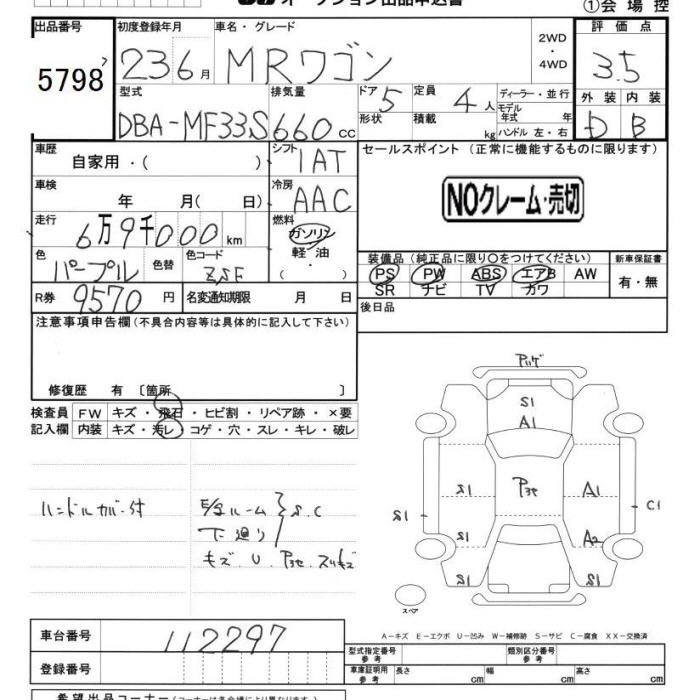 オークション出品申込書
①会場控
出品番号 5798
初度登録年月 23 6月
車名・グレード MRワゴン
2WD・4WD
評価点 3.5
外装 D 内装 B
型式 DBA-MF33S
排気量 660 cc
ドア 5
形状
定員 4人
積載 kg
ディーラー・並行
モデル年式 年
ハンドル 左・右
車歴 自家用・( )
シフト 1AT
セールスポイント (正常に機能するものに限ります)
車検 年 月( 日)
冷房 AAC
NOクレーム・売切
走行 6万9千000km
燃料 ガソリン 軽油・( )
色 パープル
色替
色コード ZSF
装備品(純正品に限り○をつけてください)
PS PW ABS エアB AW
SR ナビ TV カワ
新車保証書 有・無
R券 9570円
名変通知期限 月 日
後日品
注意事項申告欄(不具合内容等は具体的に記入して下さい)
修復歴 有 〔箇所 〕
検査員記入欄
FW キズ・飛石・ヒビ割・リペア跡・×要
内装 キズ・汚レ・コゲ・穴・スレ・キレ・破レ
ハンドルカバー付
下廻り S.C
キズ.U.
S1
A1
S1 A1
S1 C1
S1 A2
S1 S1
スペア
A-キズ E-エクボ U-凹み W-補修跡 S-サビ C-腐食 XX-交換済
車台番号 112297
型式指定番号 参考
類別区分番号 参考
登録番号
車庫証明用 参考 長さ cm 幅 cm 高さ cm
希望出品コーナー(コーナーは各会場により異なります)